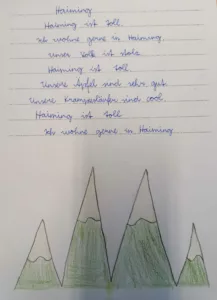 Haiming
Haiming ist toll.
Ich wohne gerne in Haiming.
Unser Volk ist stolz.
Haiming ist toll.
Unsere Äpfel sind sehr gut.
Unsere Krampusläufer sind cool.
Haiming ist toll
Ich wohne gerne in Haiming